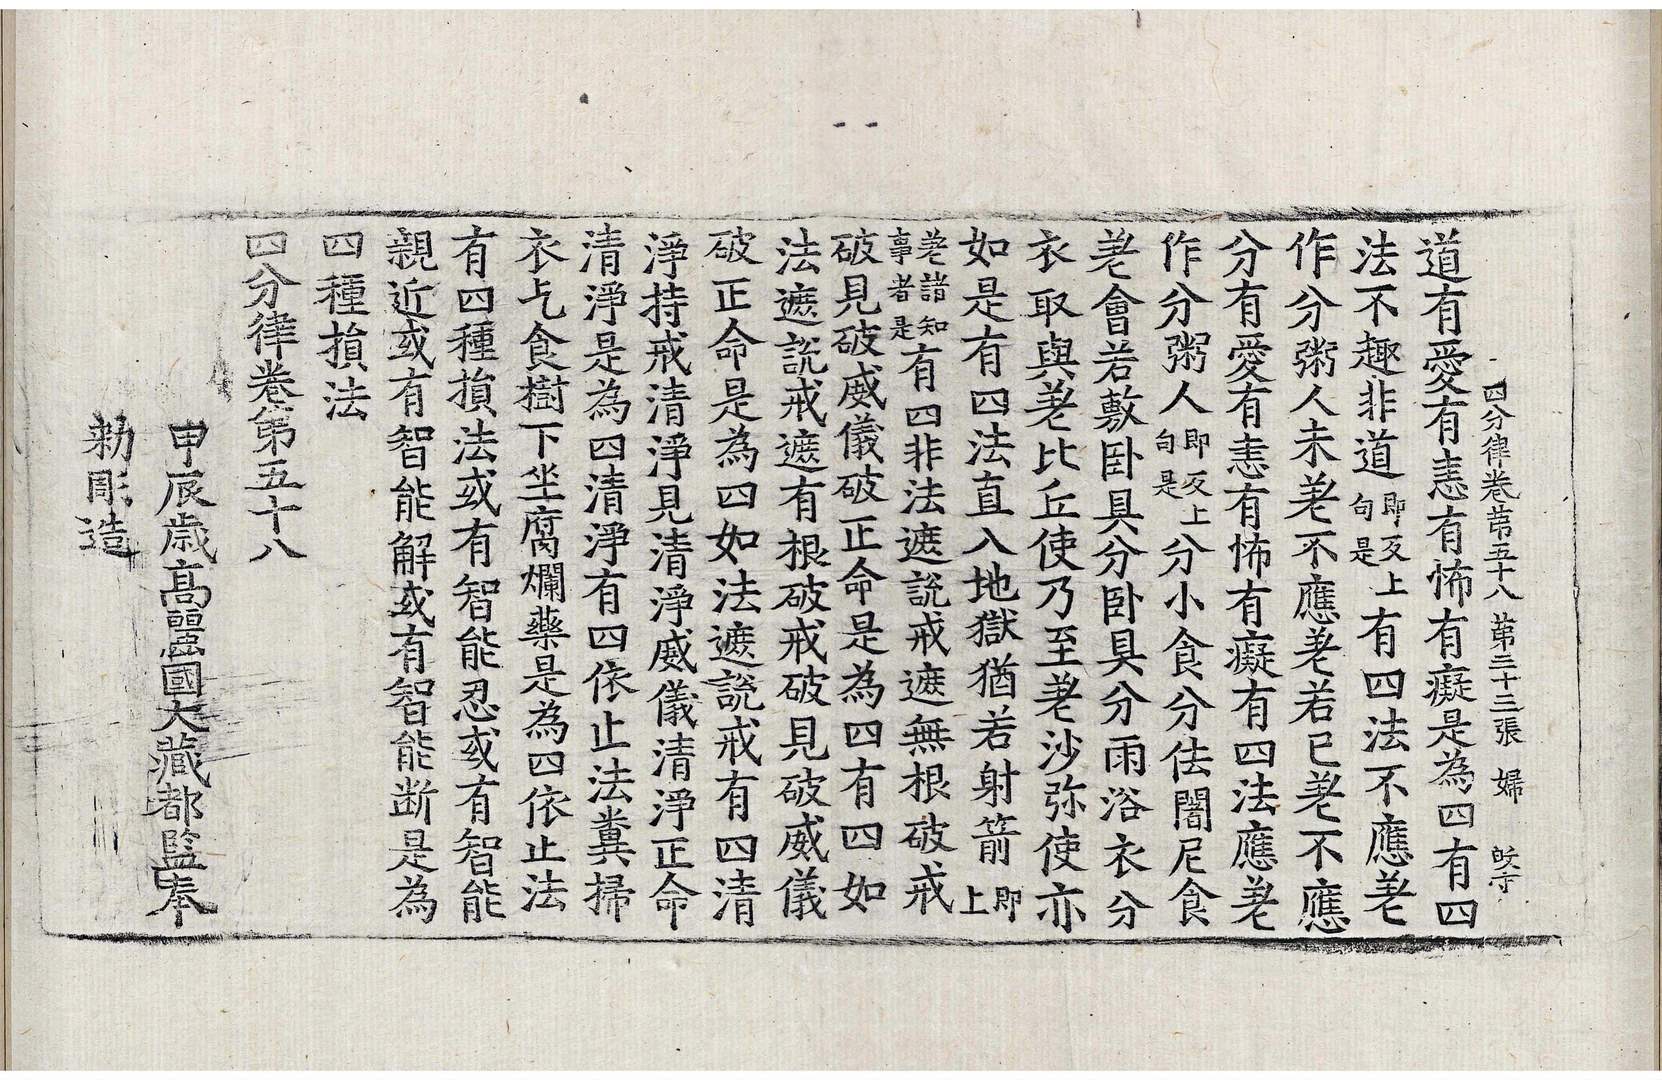 四分律卷苐五十八 苐三十三張 婦
道有愛有恚有怖有癡是為四有四
法不趣非道即反上句是有四法不應差
作分粥人未差不應差若已差不應
分有愛有恚有怖有癡有四法應差
作分粥人即反上句是分小食分佉闍尼食
差會若敷卧具分卧具分雨浴衣分
衣取與差比丘使乃至差沙弥使亦
如是有四法直入地獄猶若射箭即上
差諸知事者是有四非法遮說戒遮無根破戒
破見破威儀破正命是為四有四如
法遮說戒遮有根破戒破見破威儀
破正命是為四如法遮說戒有四清
淨持戒清淨見清淨威儀清淨正命
清淨是為四清淨有四依止法糞掃
衣乞食樹下坐腐爛藥是為四依止法
有四種損法或有智能忍或有智能
親近或有智能解或有智能断是為
四種損法
四分律卷第五十八
甲辰歲高麗國大藏都監奉
勑彫造